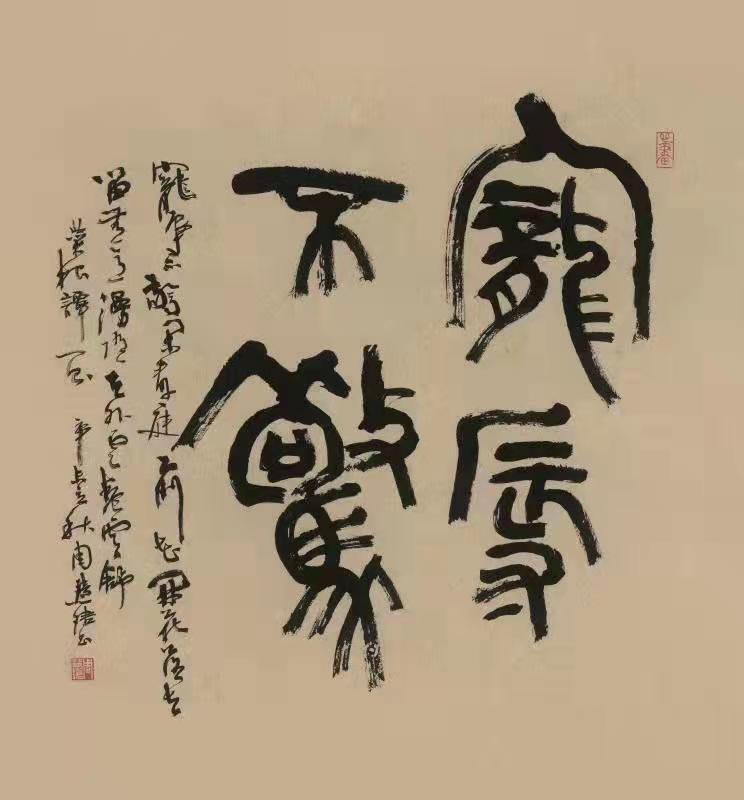 寵辱
不驚
寵辱不驚閑看庭前花開花落去
留無意漫隨天外雲卷雲舒
菜根譚句 辛丑秋周